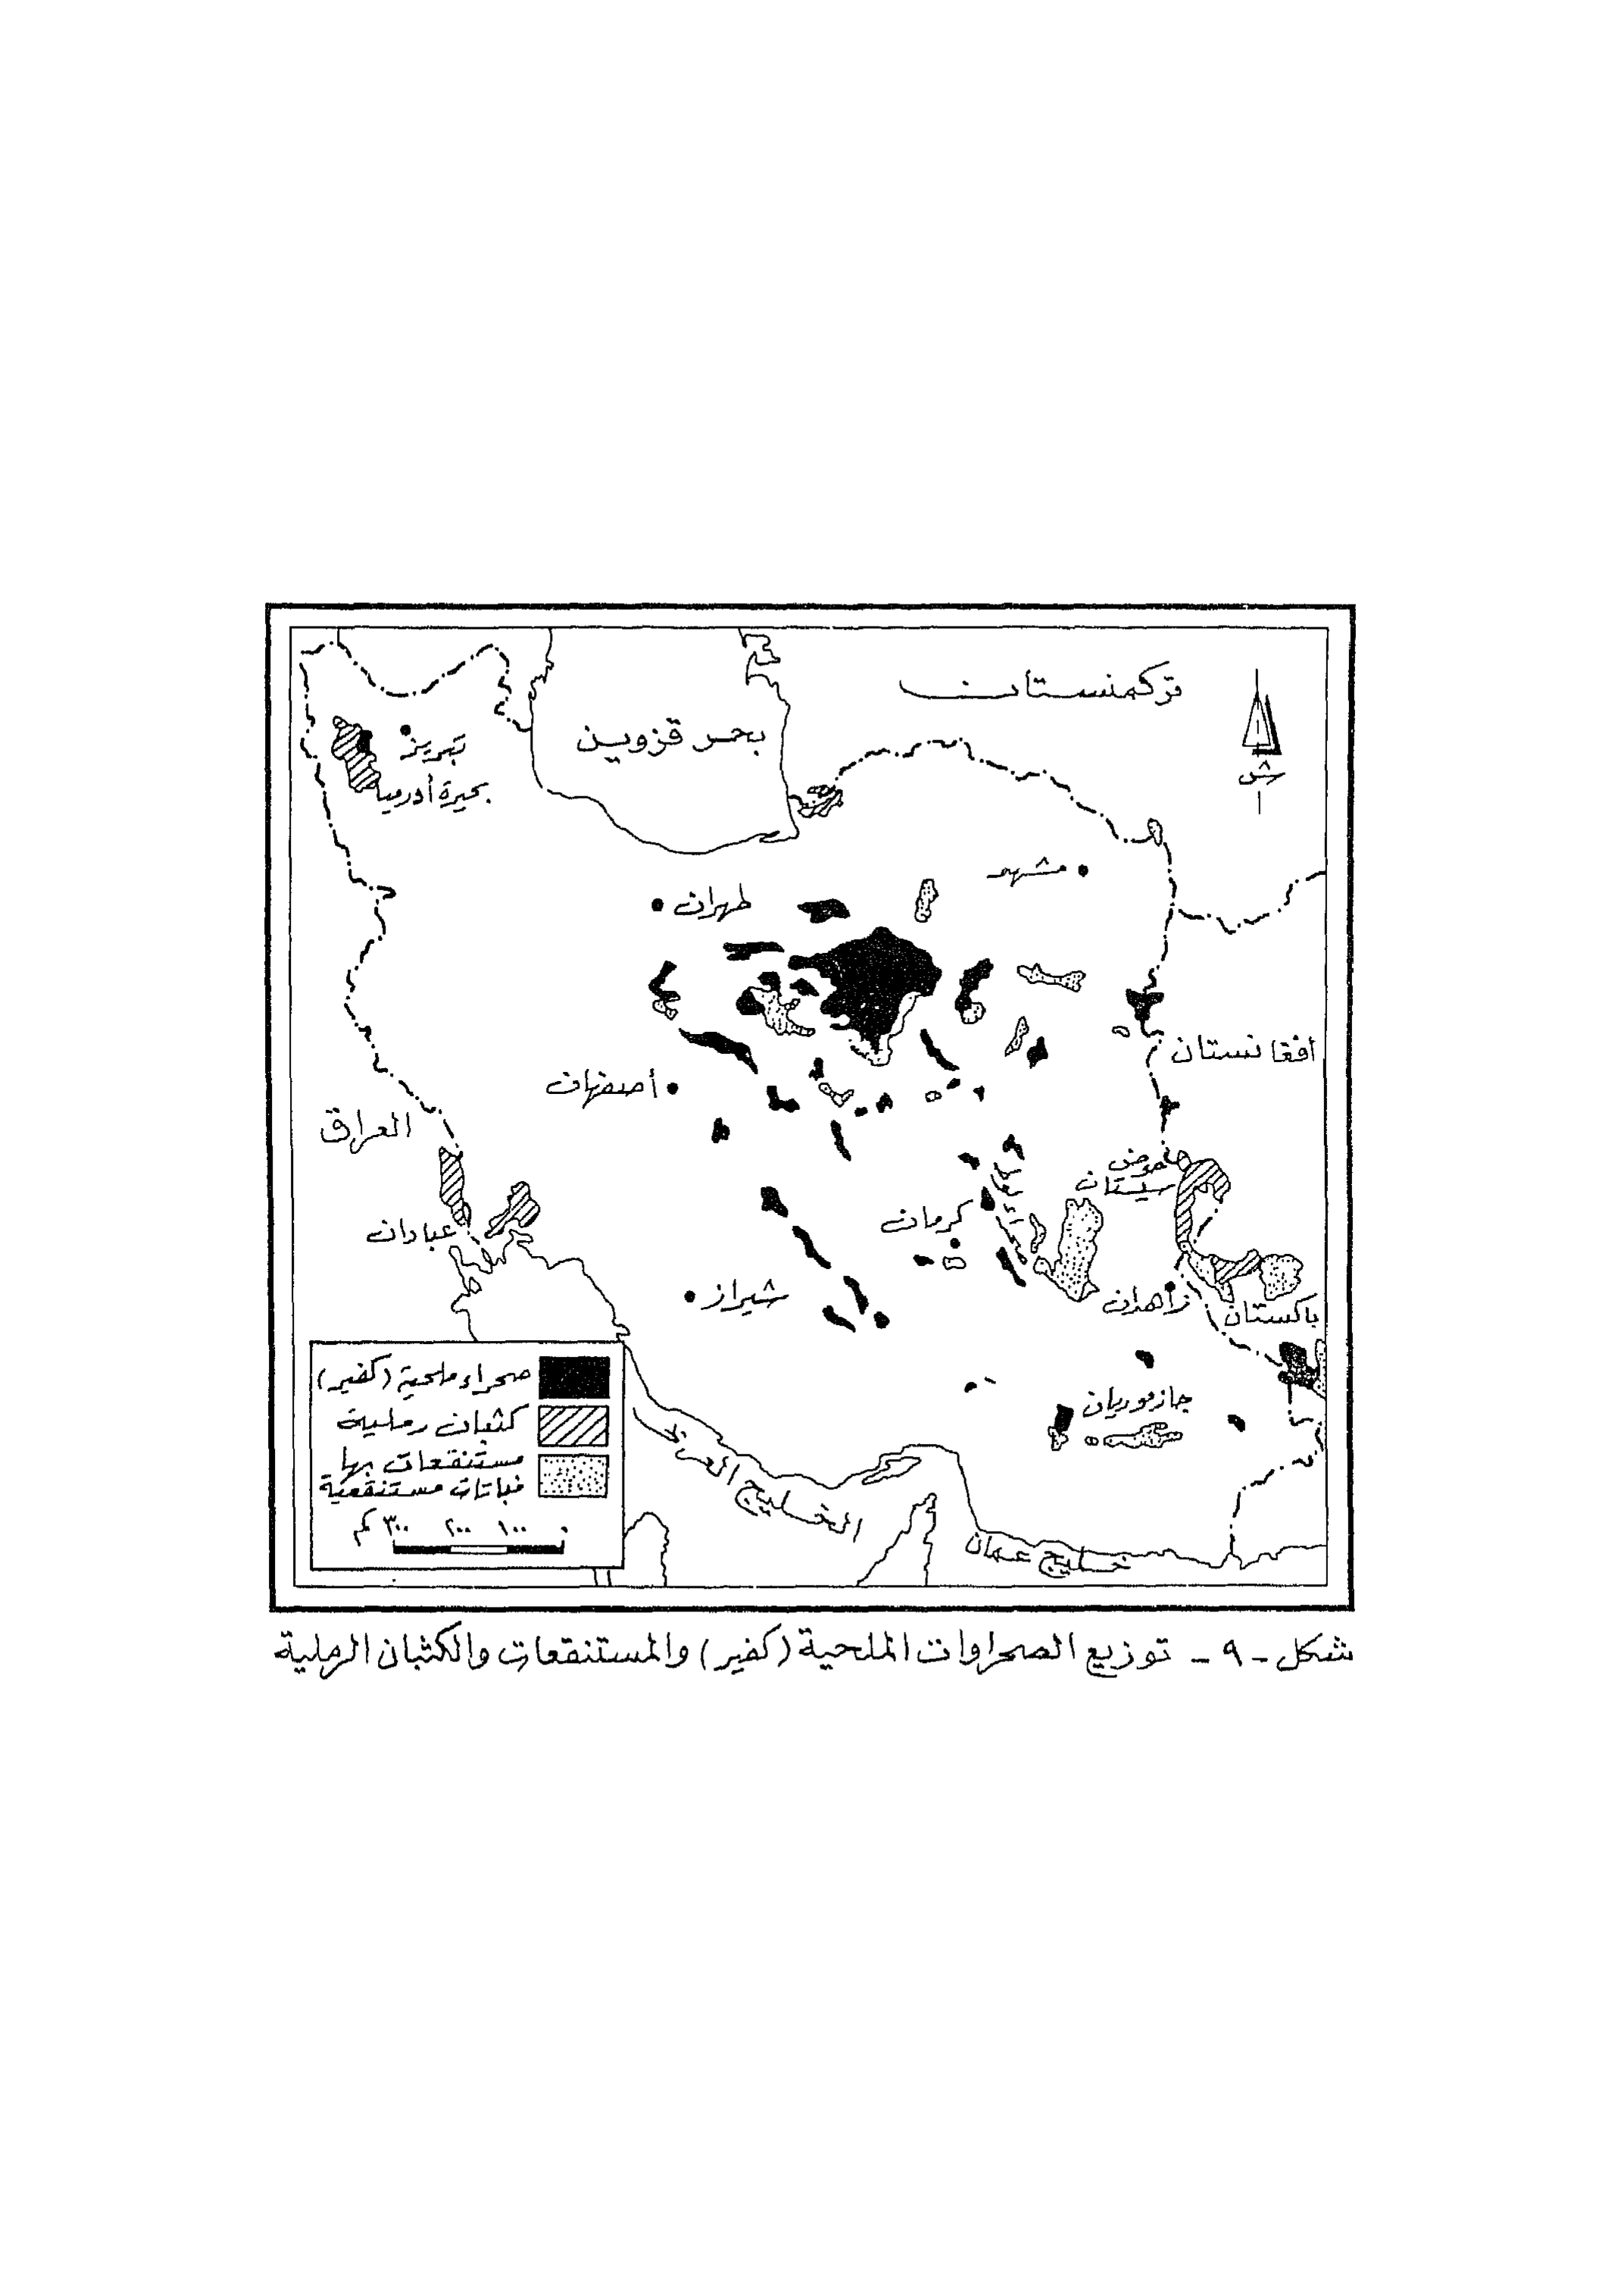 تركمنستان
بحر قزوين
ش
تبريز
بحيرة أدورميا
مشهد
طهران
أفغانستان
أصفهان
العراق
حوض
سيستان
عبادان
كرمان
شيراز
زاهدان
باكستان
جازموريان
الخليج العربي
خليج عمان
صحراء ملحية (كفير)
كثبان رملية
مستنقعات بها
نباتات مستنقعية
٠ ١٠٠ ٢٠٠ ٣٠٠ كم
شكل - ٩ - توزيع الصحراوات الملحية (كفير) والمستنقعات والكثبان الرملية